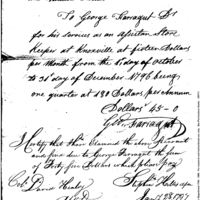 To George Farragut Dr
for his service as an assistan Store
Keeper at Knoxville at fifteen Dollars
per Month from the 1st day of October
to 31st day of December 1796 being
one quarter at 180 Dollars per Annum
Dollars 45-0
Geo: Farragut
I Certify that I have Examined the above Account
and find due to George Farragut the sum of
Forty five Dollars which please pay
Col David Henley
Stephen
Jany 28 1797